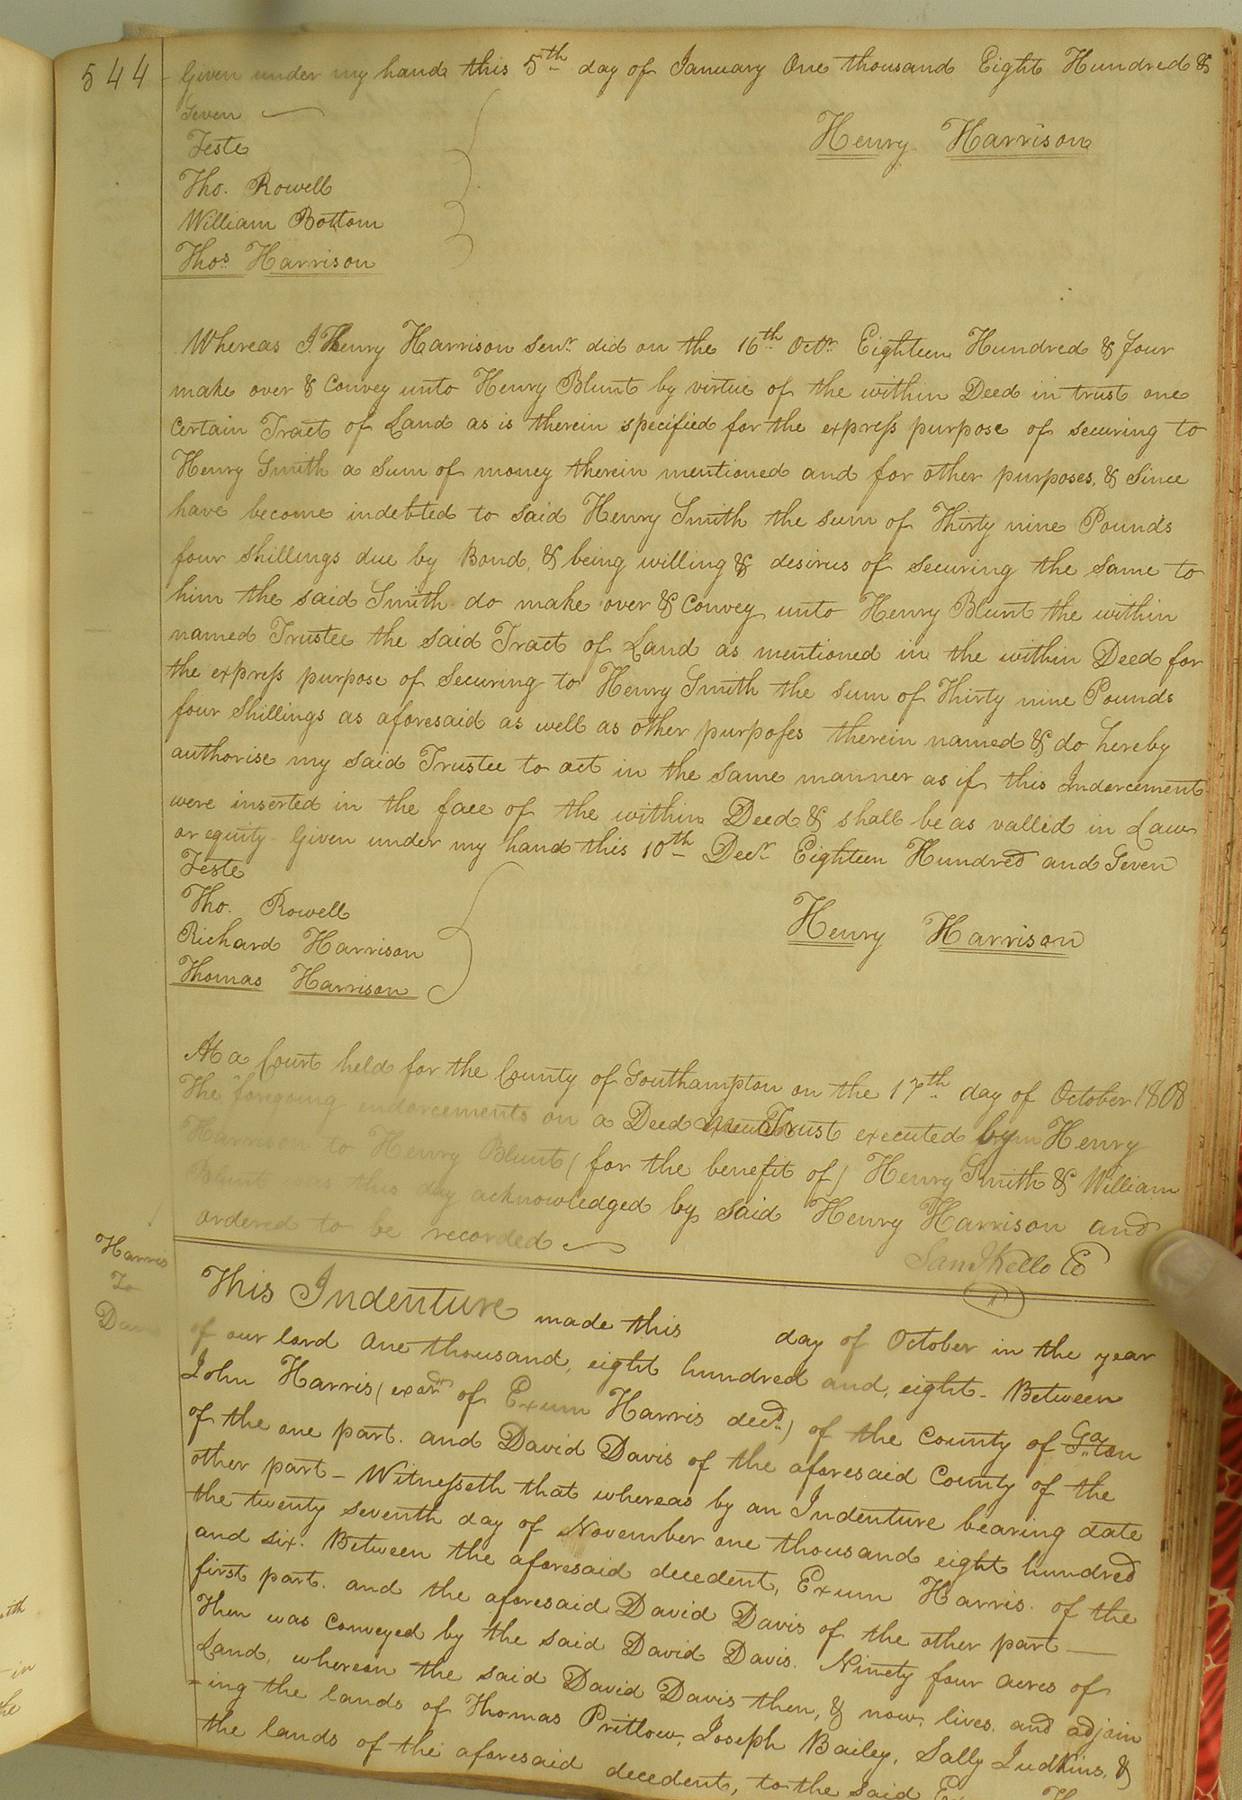 544
Given under my hand this 5th day of January One thousand Eight Hundred &
Seven
Teste
Tho. Rowell
William Bottom
Thos Harrison
Henry Harrison
Whereas I Henry Harrison Senr did on the 16th Octr Eighteen Hundred & four
make over & Convey unto Henry Blunt by virtue of the within Deed in trust one
Certain Tract of Land as is therein specified for the express purpose of securing to
Henry Smith a Sum of money therein mentioned and for other purposes, & Since
have become indebted to said Henry Smith the sum of Thirty nine Pounds
four Shillings due by Bond, & being willing & desirus of Securing the Same to
him the said Smith do make over & Convey unto Henry Blunt the within
named Trustee the said Tract of Land as mentioned in the within Deed for
the express purpose of Securing to Henry Smith the sum of Thirty nine Pounds
four Shillings as aforesaid as well as other purposes therein named & do hereby
authorise my said Trustee to act in the same manner as if this Indorcement
were inserted in the face of the within Deed & shall be as vallid in Law
or equity - Given under my hand this 10th Decr Eighteen Hundred and Seven
Teste
Tho. Rowell
Richard Harrison
Thomas Harrison
Henry Harrison
At a Court held for the County of Southampton on the 17th day of October 1808
The foregoing endorcements on a Deed Trust executed by Henry
Harrison to Henry Blunt (for the benefit of) Henry Smith & William
Blunt was this day acknowledged by said Henry Harrison and
ordered to be recorded
Saml Kello C
Harris
To
Davis
This Indenture made this day of October in the year
of our lord One thousand, eight hundred and, eight - Between
John Harris (exor of Exum Harris decd) of the County of
of the one part. and David Davis of the aforesaid County of the
other part - Witnesseth that whereas by an Indenture bearing date
the twenty seventh day of November one thousand eight hundred
and six. Between the aforesaid decedent, Exum Harris. of the
first part. and the aforesaid David Davis of the other part
Then was Conveyed by the said David Davis. Ninety four acres of
Land, whereon the said David Davis then, & now, lives, and adjoin
=ing the lands of Thomas Pritlow, Joseph Bailey, Sally Judkins, &
the lands of the aforesaid decedent, to the said